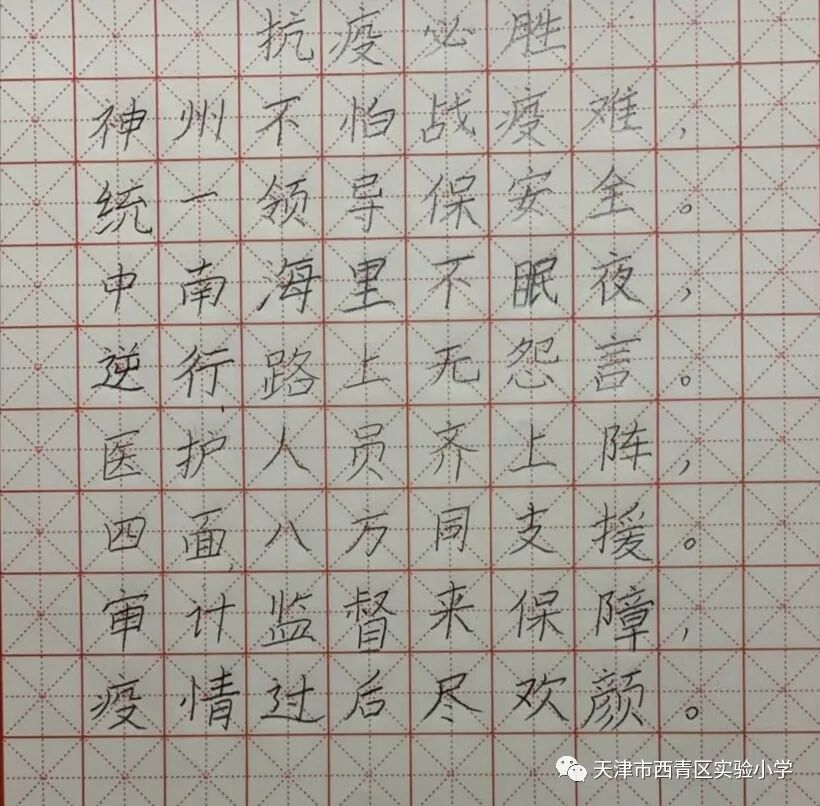 抗疫必胜
神州不怕战疫难，
统一领导保安全。
中南海里不眠夜，
逆行路上无怨言。
医护人员齐上阵，
四面八万同支援。
审计监督来保障，
疫情过后尽欢颜。
天津市西青区实验小学